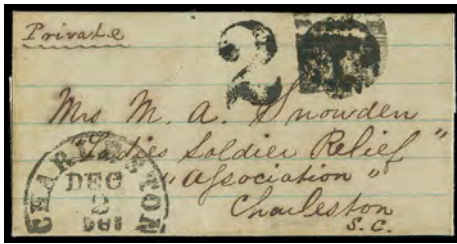 Private
2
Mrs M. A. Snowden
"Ladies Soldier Relief"
"Association"
Charleston
S.C.
CHARLESTON
DEC
2